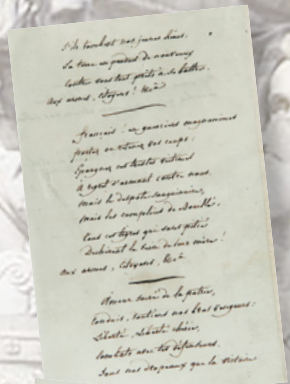 S'ils tombent, nos jeunes héros,
La terre en produit de nouveaux
Contre vous tout prêts à se battre.
Aux armes, Citoyens !
Français ! en guerriers magnanimes
portez ou retenez vos coups.
Epargnez ces tristes victimes
A regret s'armant contre nous.
Mais le despote sanguinaire,
Mais les complices de Bouillé,
Tous ces tigres qui sans pitié
Déchirent le sein de leur mère !
Aux armes, Citoyens,
Amour sacré de la patrie,
Conduis, soutiens nos bras vengeurs :
Liberté, Liberté chérie,
Combats avec tes défenseurs.
Sous nos drapeaux que la victoire